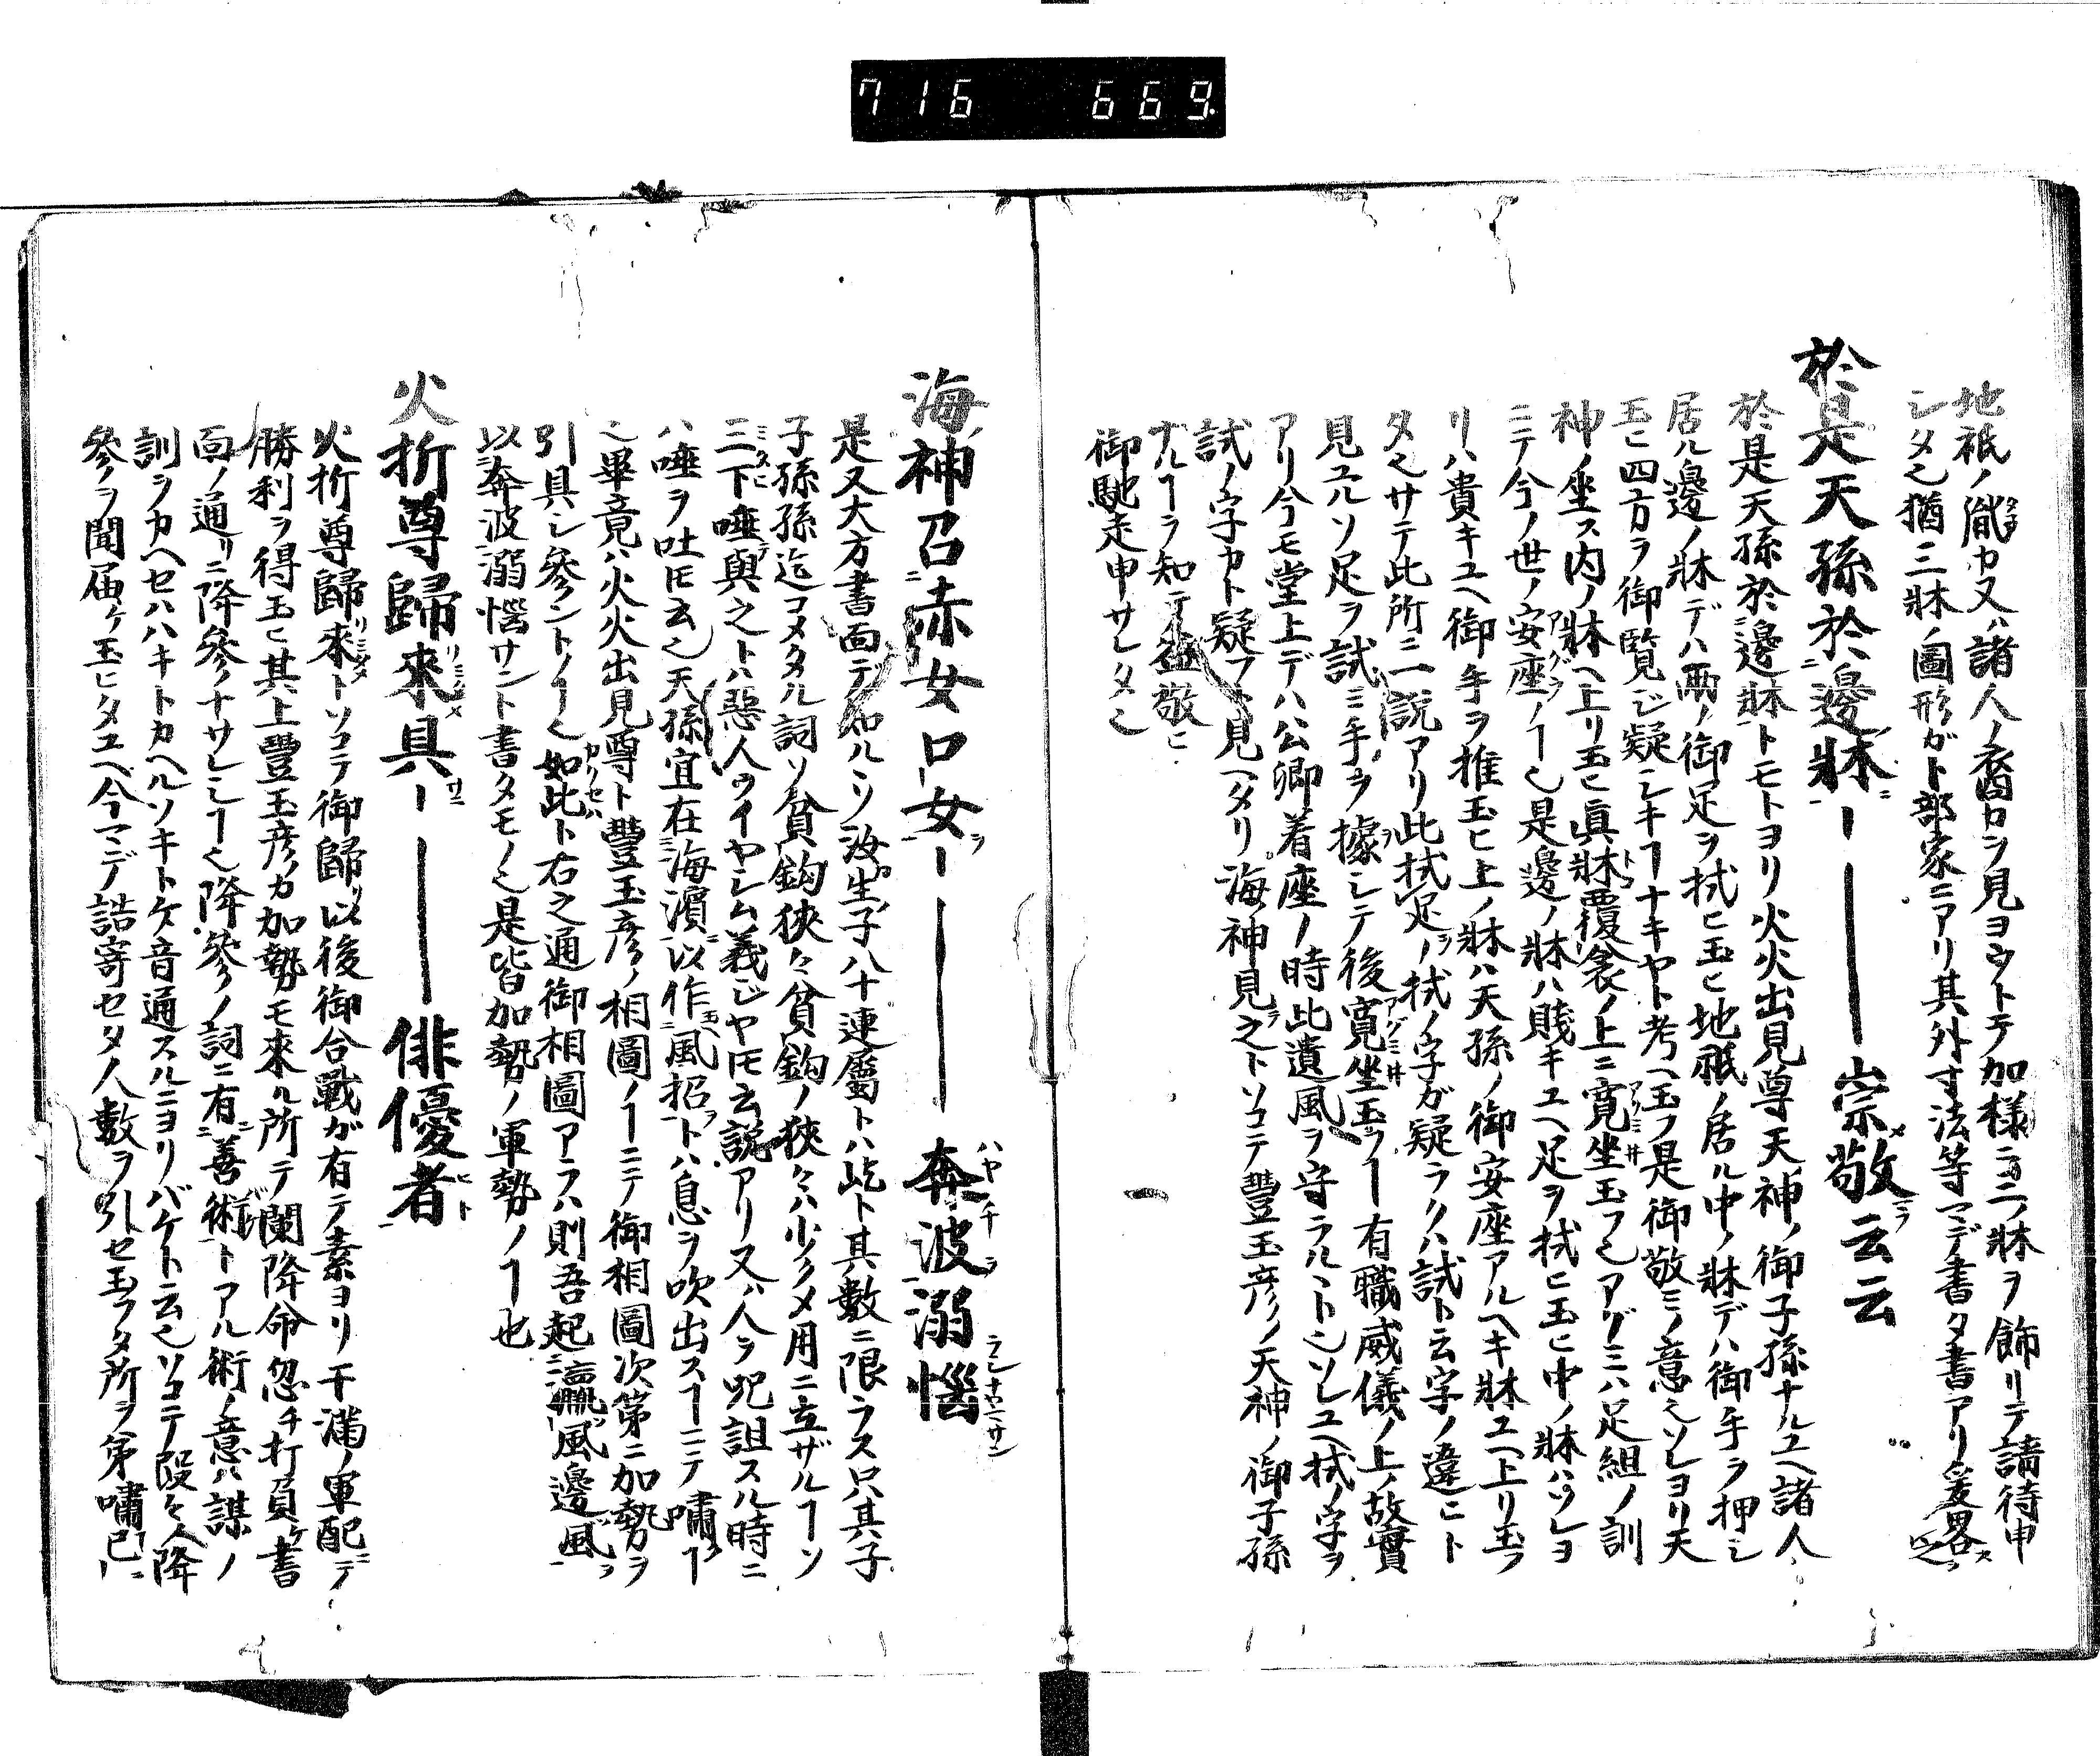 716 669.
地祇ノ胤カ又ハ諸人ノ裔ロシ見ヨウトテ加様ニ三ノ牀ヲ飾リテ請待申
シタ也猶三牀ノ圖形ガト部家ニアリ其外寸法等マデ書タ書アリ爰畧ス之ヲ
於是天孫於邊牀ー――崇敬云云
於是天孫於邊牀トモトヨリ火火出見尊天神ノ御子孫ナルユヘ諸人
居ル邊ノ牀デハ兩ノ御足ヲ拭ヒ玉ヒ地祇ノ居ル中ノ牀デハ御手ヲ押シ
玉ヒ四方ヲ御覧ジ疑シキヿナキヤト考ヘ玉フ是御敬ミノ意也ソレヨリ天
神ノ坐ス内ノ牀ヘ上リ玉ヒ眞牀覆衾ノ上ニ寛坐玉フ也アグミハ足組ノ訓
ニテ今ノ世ノ安座ノヿ也是邊ノ牀ハ賤キユヘ足ヲ拭ヒ玉ヒ中ノ牀ハソレヨ
リハ貴キユヘ御手ヲ推玉ヒ上ノ牀ハ天孫ノ御安座アルヘキ牀ユヘ上リ玉フ
タ也サテ此所ニ一説アリ此拭足ノ拭ノ字ガ疑ラクハ試ト云字ノ違ヒト
見ユルソ足ヲ試ミ手ヲ據シテ後寛坐玉フヿ有職ノ威儀ノ上ノ故實
アリ今モ堂上デハ公卿着座ノ時此遺風ヲ守ラルヽト也ソレユヘ拭ノ字ヲ
試ノ字カト疑フト見ヘタリ海神見之トソコテ豊玉彦ノ天神ノ御子孫
ナルヿヲ知テ益敬ヒ
御馳走申サレタ也
海神召赤女口女ー――奔波溺惱
是又大方書面デ知ルソ汝生子八十連屬トハ屹ト其數ニ限ラス只其子
子孫孫迄コメタル詞ソ貧鈎狹々貧鈎ノ狹々ハ少クメ用ニ立ザルヿソ
三下唾與之トハ惡人ヲイヤシム義ジヤ𪜈云説アリ又ハ人ヲ呪詛スル時ニ
ハ唾ヲ吐𪜈云也天孫宜在海濱以作風招トハ息ヲ吹出スヿニテ嘯ヿ
也畢竟ハ火火出見尊ト豐玉彦ノ相圖ノヿニテ御相圖次第ニ加勢ヲ
引具シ參ントノヿ也如此ト右之通御相圖アラハ則吾起瀛風邊風
以奔波溺惱サント書タモノ也是皆加勢ノ軍勢ノヿ也
火折尊歸來具ー――俳優者
火折尊歸來トソコテ御歸リ以後御合戰ガ有テ素ヨリ干滿ノ軍配ニテ
勝利ヲ得玉ヒ其上豐玉彦ノカ加勢モ來ル所テ闌降命忽チ打負ケ書
面ノ通リニ降參ナサレシヿ也降參ノ詞ニ有善術トアル術ノ意ハ謀ノ
訓ヲカヘセハハキトカヘルソキトケ音通スルニヨリバケト云也ソコテ段々人降
參ヲ聞届ケ玉ヒタユヘ今マデ詰寄セタ人數ヲ引セ玉フタ所ヲ第嘯已ー